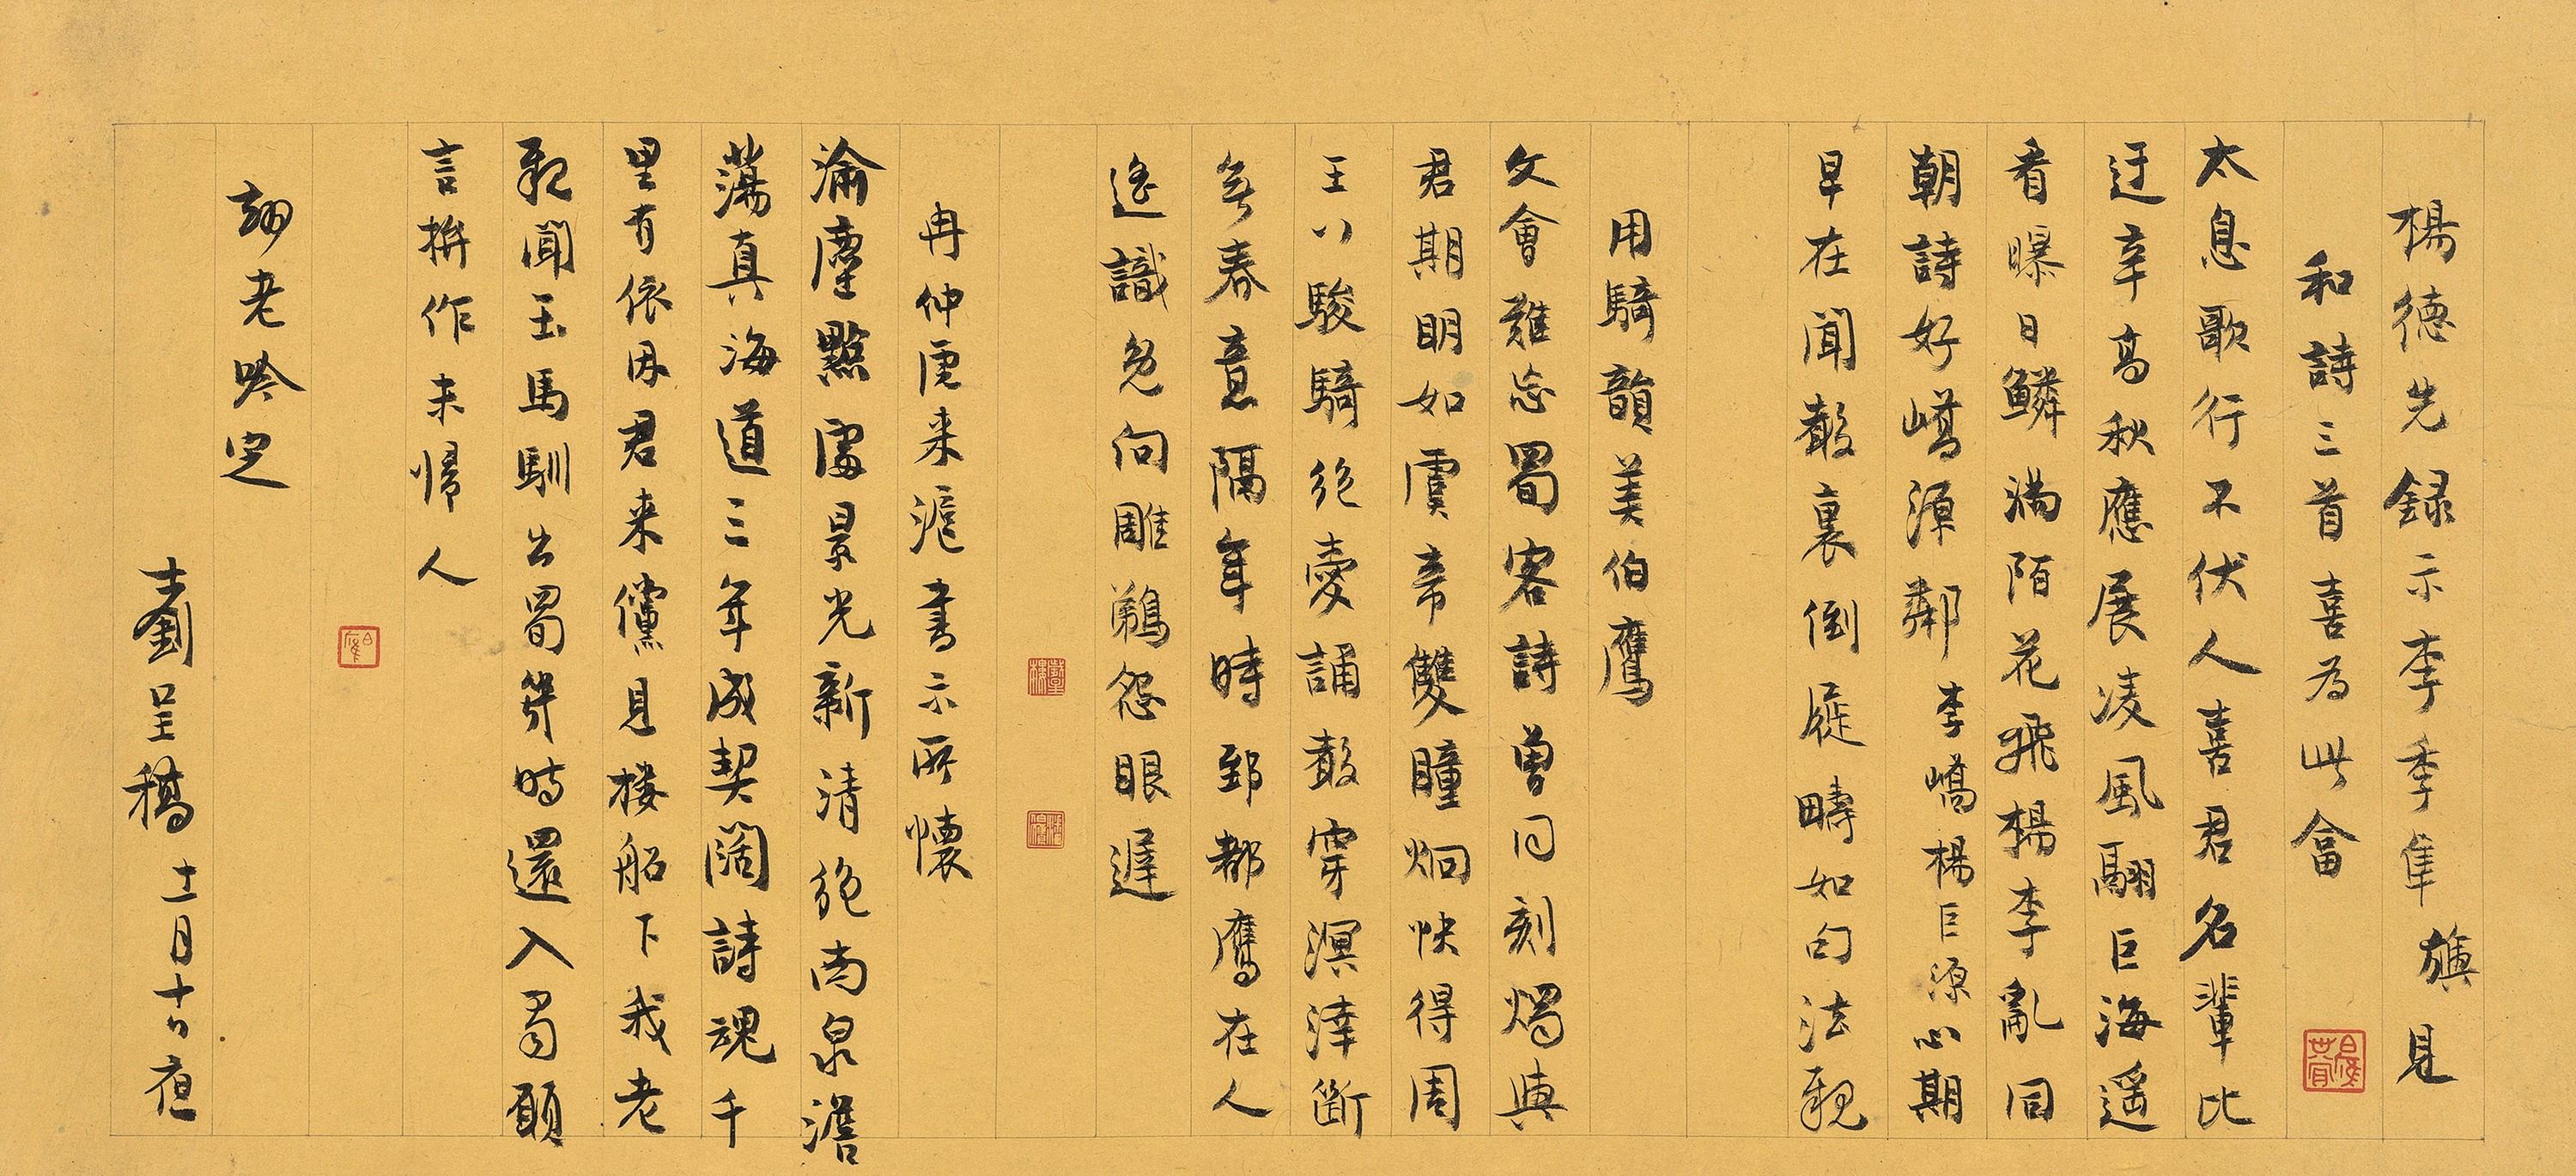 楊德先録示李季隼 見
和詩三首喜為此會
太息歌行不伏人喜君名輩比
迂辛高秋應展凌風翮巨海遥
看曝日鱗滿陌花飛楊李亂同
朝詩好嶠源鄰李嶠楊巨源心期
早在聞聲裏倒屣疇如句法親
用騎韻美伯鷹
文會難忘蜀客詩曾同刻燭與
君期明如虞帝雙瞳炯快得周
王八駿騎絶愛誦聲穿溟涬斷
無春意隔年時郅都鷹在人
遥識免向雕鵜怨眼遲
冉仲虎来滬書示所懷
瀹塵點雷景光新清絶南泉澹
蕩真海道三年成契闊詩魂千
里有依因君来儻見楼船下我老
親聞玉馬馴出蜀幾時還入蜀願
言拚作未歸人
翊老吟定
劉呈稿十二月十六夜